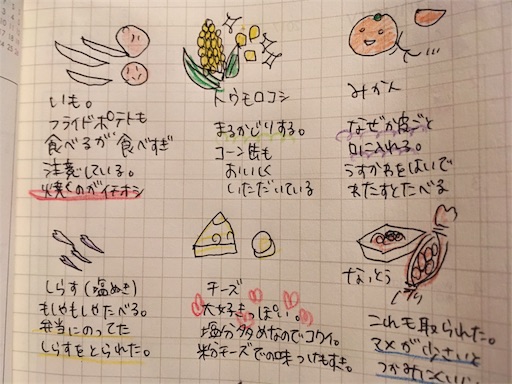 いも。
フライドポテトも
食べるが食べすぎ
注意している。
焼くのがイチオシ
トウモロコシ
まるかじりする。
コーン缶も
おいしく
いただいている
みかん
なぜか皮ごと
口に入れる。
うすかわをはいで
わたすとたべる
しらす(塩ぬき)
もしゃもしゃたべる。
弁当にのってた
しらすをとられた。
チーズ
大好きっぽい。
塩分多めなのでコワイ。
粉チーズでの味つけもすき。
なっとう
これも取られた。
マメが小さいと
つかみにくい